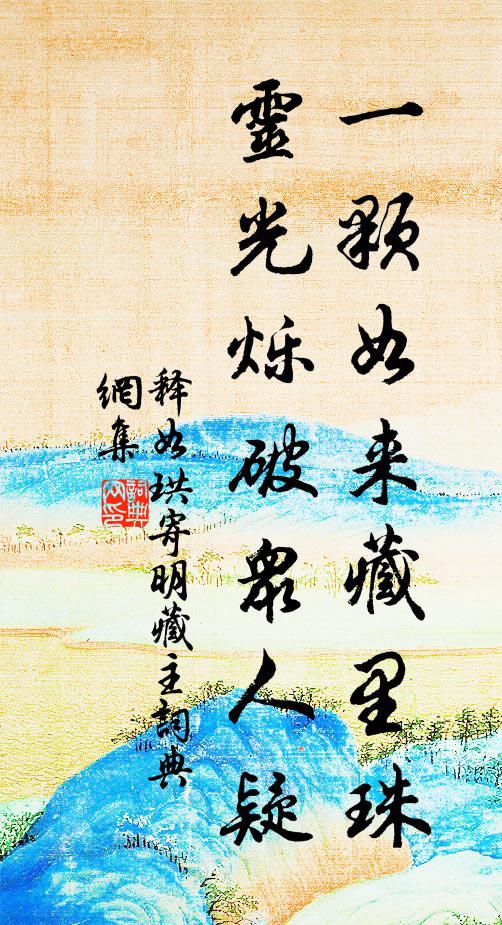 一颗如来藏里珠
靈光烁破眾人疑
释如珙寄明藏主詞典
網集
詞典